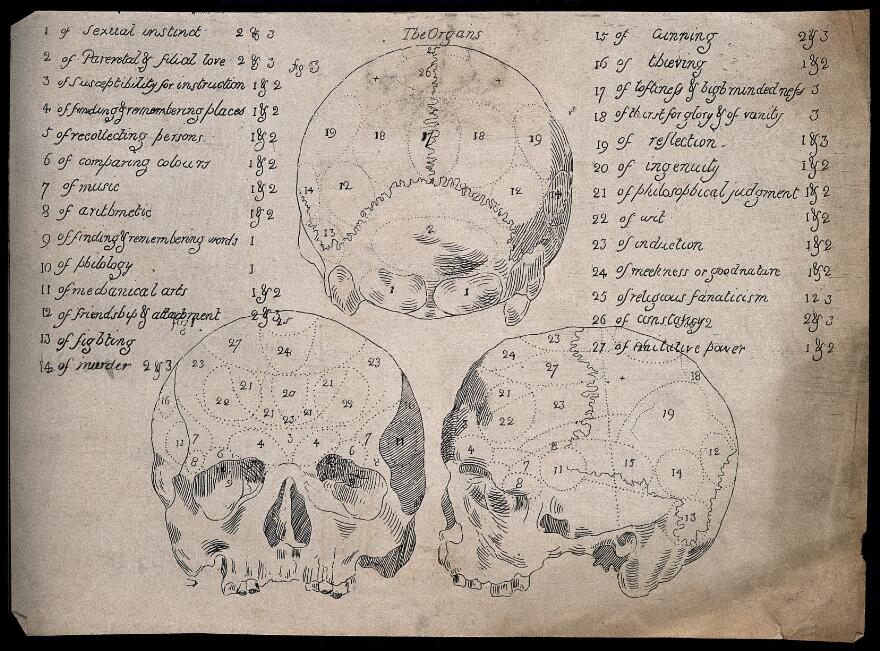 The Organs
1 of Sexual instinct 2 & 3
2 of Parental & filial love 2 & 3
3 of Susceptibility for instruction 1 & 2
4 of finding & remembering places 1 & 2
5 of recollecting persons 1 & 2
6 of comparing colours 1 & 2
7 of music 1 & 2
8 of arithmetic 1 & 2
9 of finding & remembering words 1
10 of philology 1
11 of mechanical arts 1 & 2
12 of friendship & attachment 2 & 3
13 of fighting
14 of murder 2 & 3
15 of Cunning 2 & 3
16 of thieving 1 & 2
17 of loftiness & highmindedness 3
18 of thirst for glory & of vanity 3
19 of reflection 1 & 3
20 of ingenuity 1 & 2
21 of philosophical judgment 1 & 2
22 of wit 1 & 2
23 of induction 1 & 2
24 of meekness or goodnature 1 & 2
25 of religious fanaticism 1 2 3
26 of constancy 2 & 3
27 of imitative power 1 & 2
fig 3
25
26
19 18 17 18 19
14 12 12 14
13
2
1 1
fig 1
25
27 24
23 23
21 21
16 22 20 22
21 23 21
11 7 6 4 3 4 6 7 11
8
9
fig 2
23
24
27 18
21 23 19
22
3
4 8 12
7 11 15 14
8
13